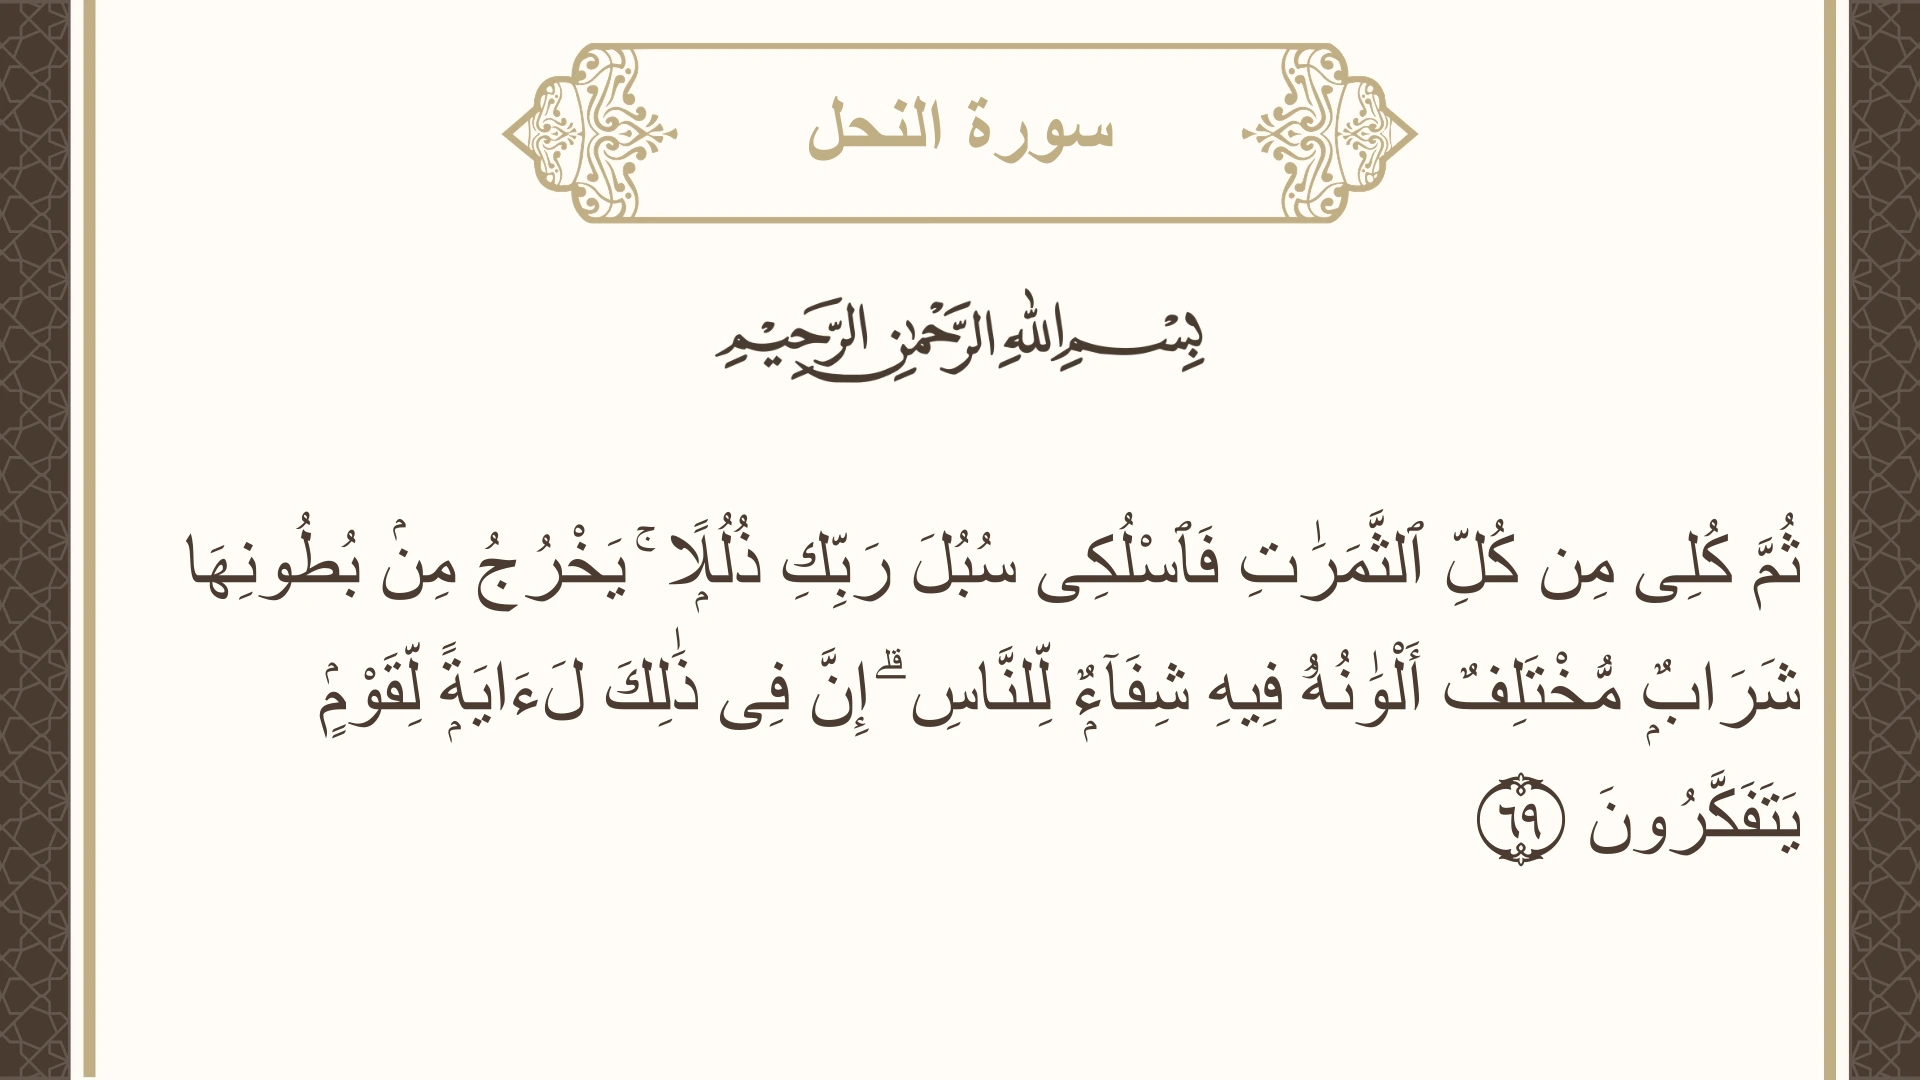 سورة النحل
بِسْمِ اللهِ الرَّحْمٰنِ الرَّحِيْمِ
ثُمَّ كُلِى مِن كُلِّ ٱلثَّمَرَٰتِ فَٱسْلُكِى سُبُلَ رَبِّكِ ذُلُلًۭا ۚ يَخْرُجُ مِنۢ بُطُونِهَا
شَرَابٌۭ مُّخْتَلِفٌ أَلْوَٰنُهُۥ فِيهِ شِفَآءٌۭ لِّلنَّاسِ ۗ إِنَّ فِى ذَٰلِكَ لَءَايَةًۭ لِّقَوْمٍۢ
يَتَفَكَّرُونَ ٦٩